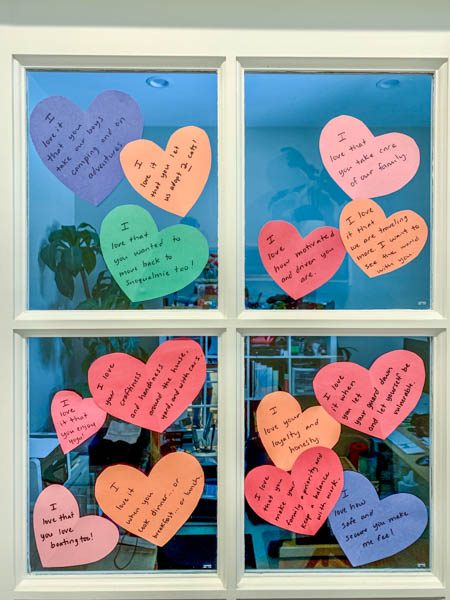 I
love it
that you
take our boys
camping and on
adventures
I
love it
that you let
us adopt 2 cats!
I
love that
you wanted to
move back to
Snoqualmie too!
I
love that
you take care
of our family
I
love
how motivated
and driven you
are.
I love
it that
we are traveling
more. I want to
see the world
with you
I
love it that
you enjoy
yoga!
I love
your
craftiness
and handiness
around the house,
yard, and with cars.
I
love that
you love
boating too!
I
love it
when you
cook dinner...or
breakfast...or lunch
I
love it when
you let
your guard down
and let yourself be
vulnerable.
I
love your
loyalty and
honesty
I love
that you
make your
family a priority and
keep a balance
with work.
I
love how
safe and
secure you make
me feel!